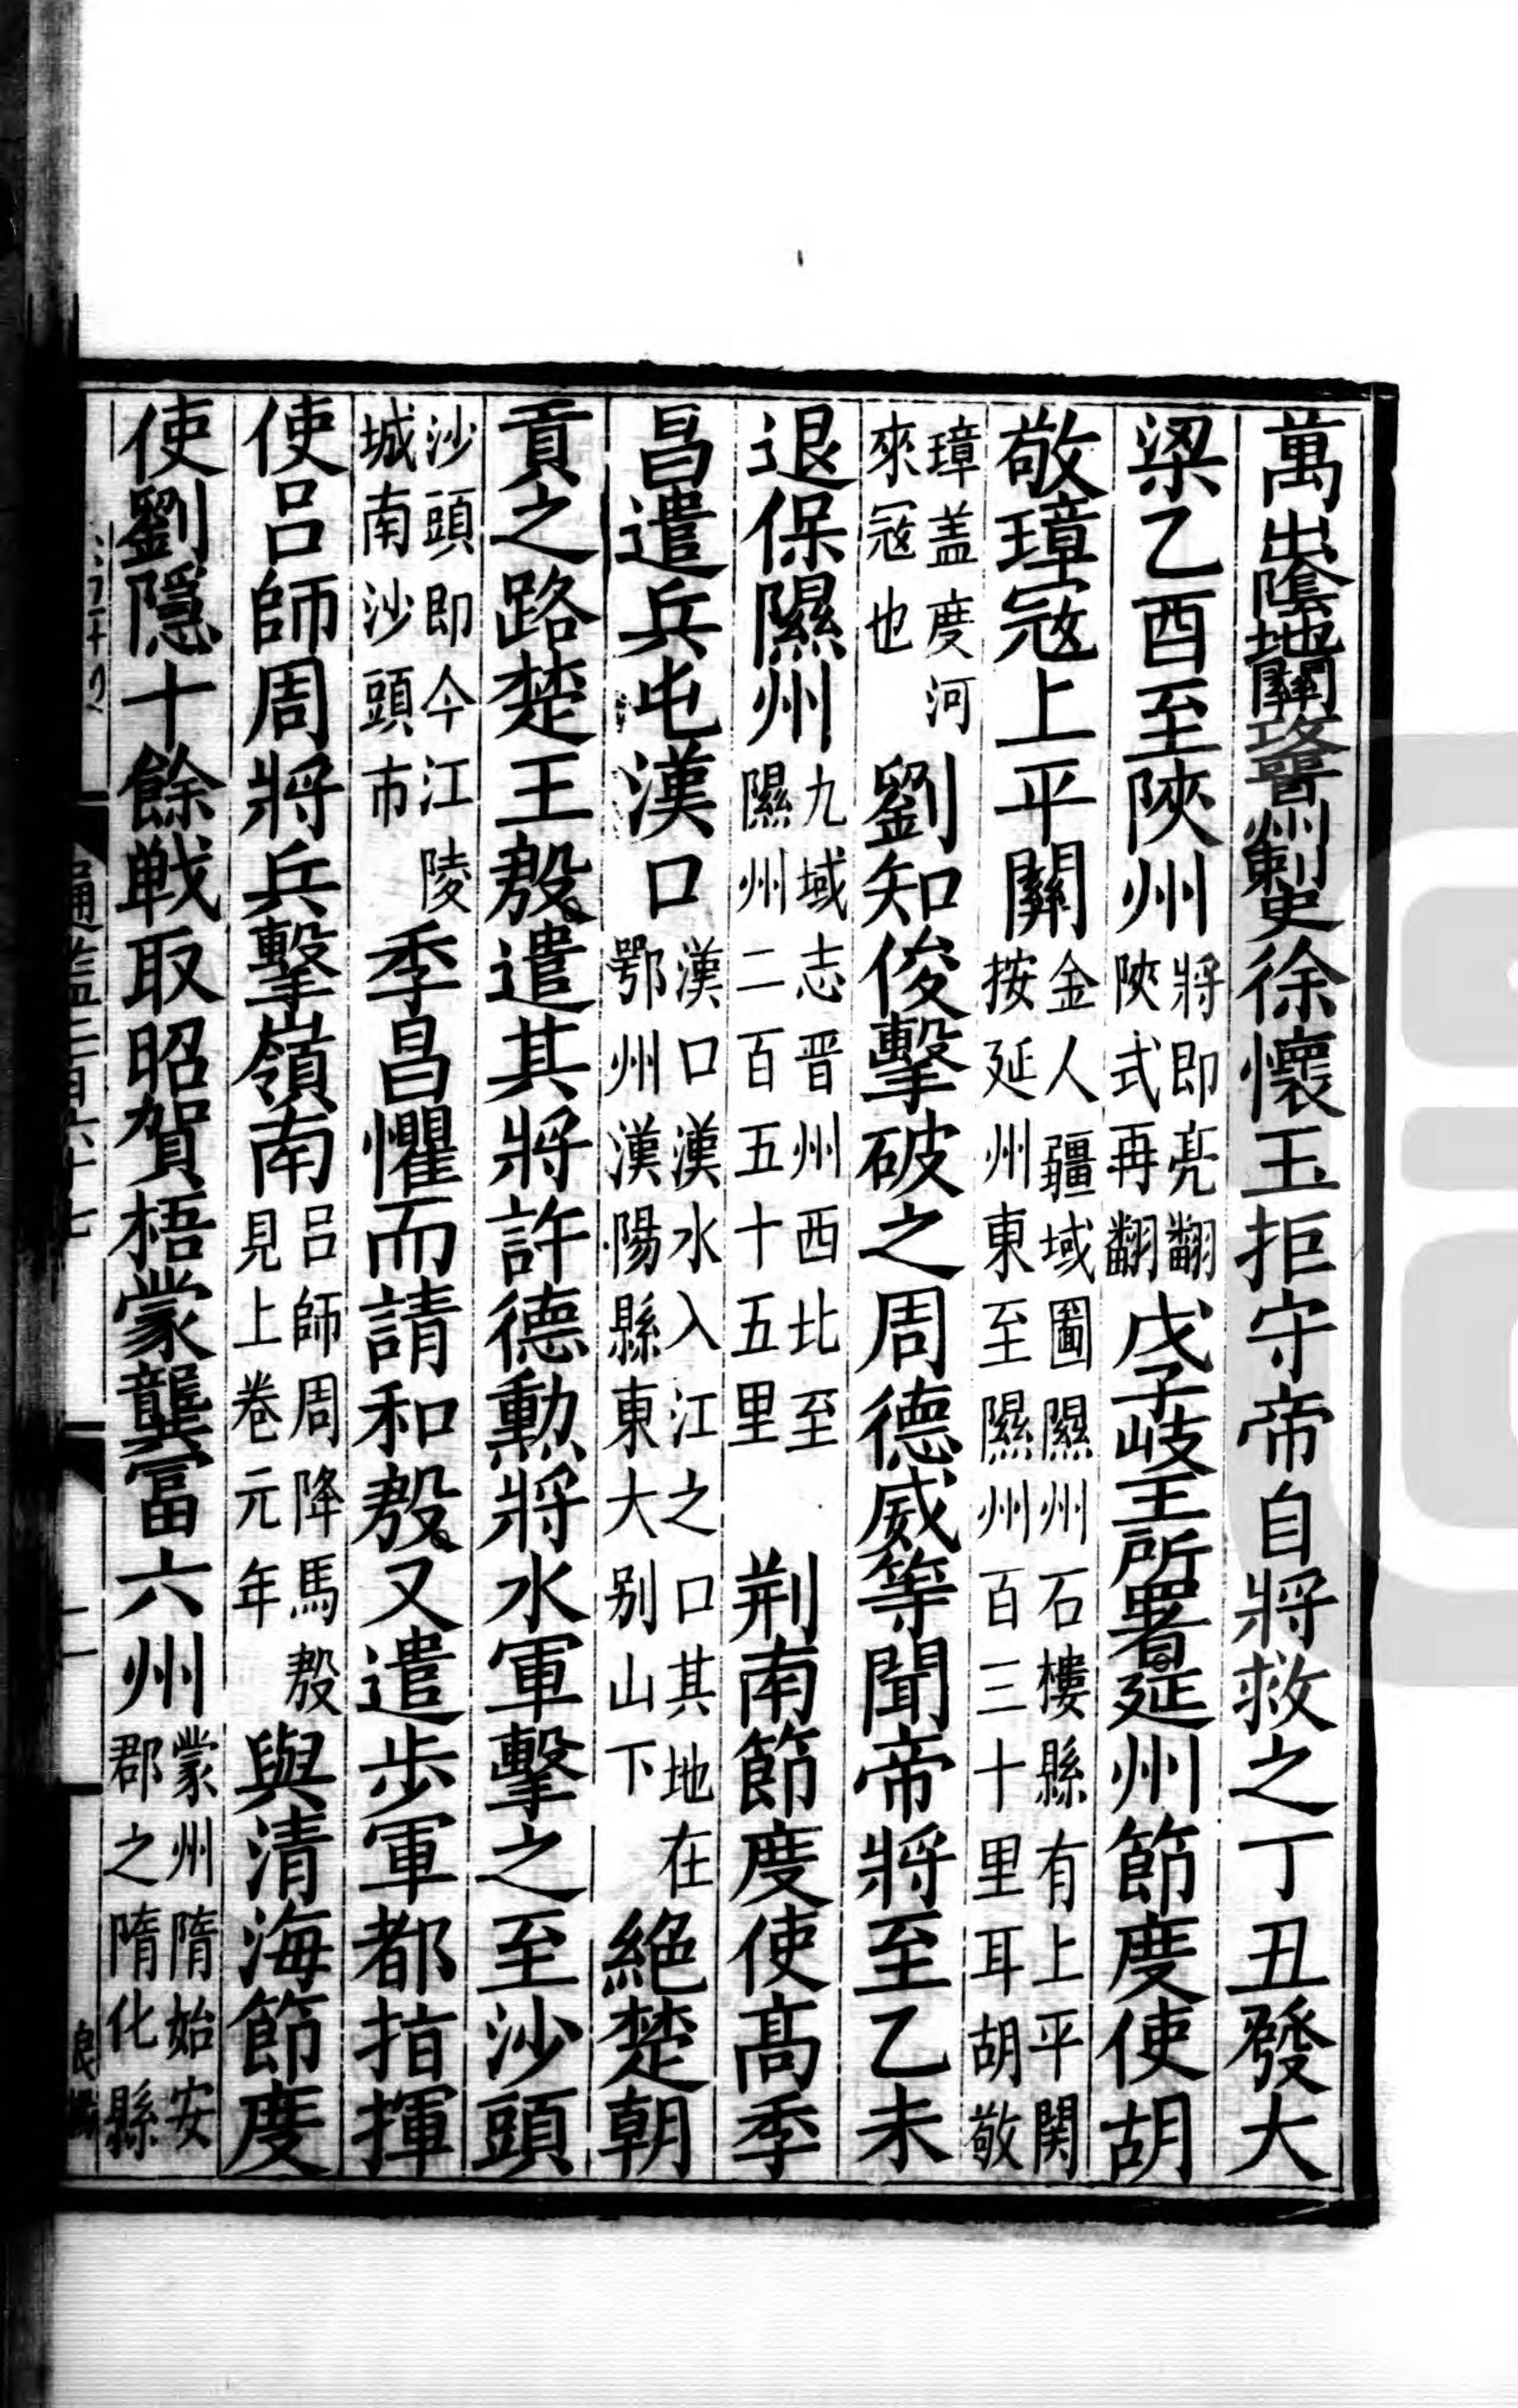 萬出陰地關攻晉州刺史徐懷玉拒守帝自將救之丁丑發大
梁乙酉至陜州將即亮翻陜式再翻戊子岐王所署延州節度使胡
敬璋寇上平關金人疆域圖隰州石樓縣有上平関按延州東至隰州百三十里耳胡敬
璋盖度河來寇也劉知俊擊破之周德威等聞帝將至乙未
退保隰州九域志晋州西北至隰州二百五十五里荆南節度使高季
昌遣兵屯漢口漢口漢水入江之口其地在鄂州漢陽縣東大别山下絕楚朝
貢之路楚王殷遣其將許德勳將水軍擊之至沙頭
沙頭即今江陵城南沙頭市季昌懼而請和殷又遣步軍都指揮
使呂師周將兵擊嶺南呂師周降馬殷見上卷元年與清海節度
使劉隱十餘戰取昭賀梧蒙龔富六州蒙州隋始安郡之隋化縣